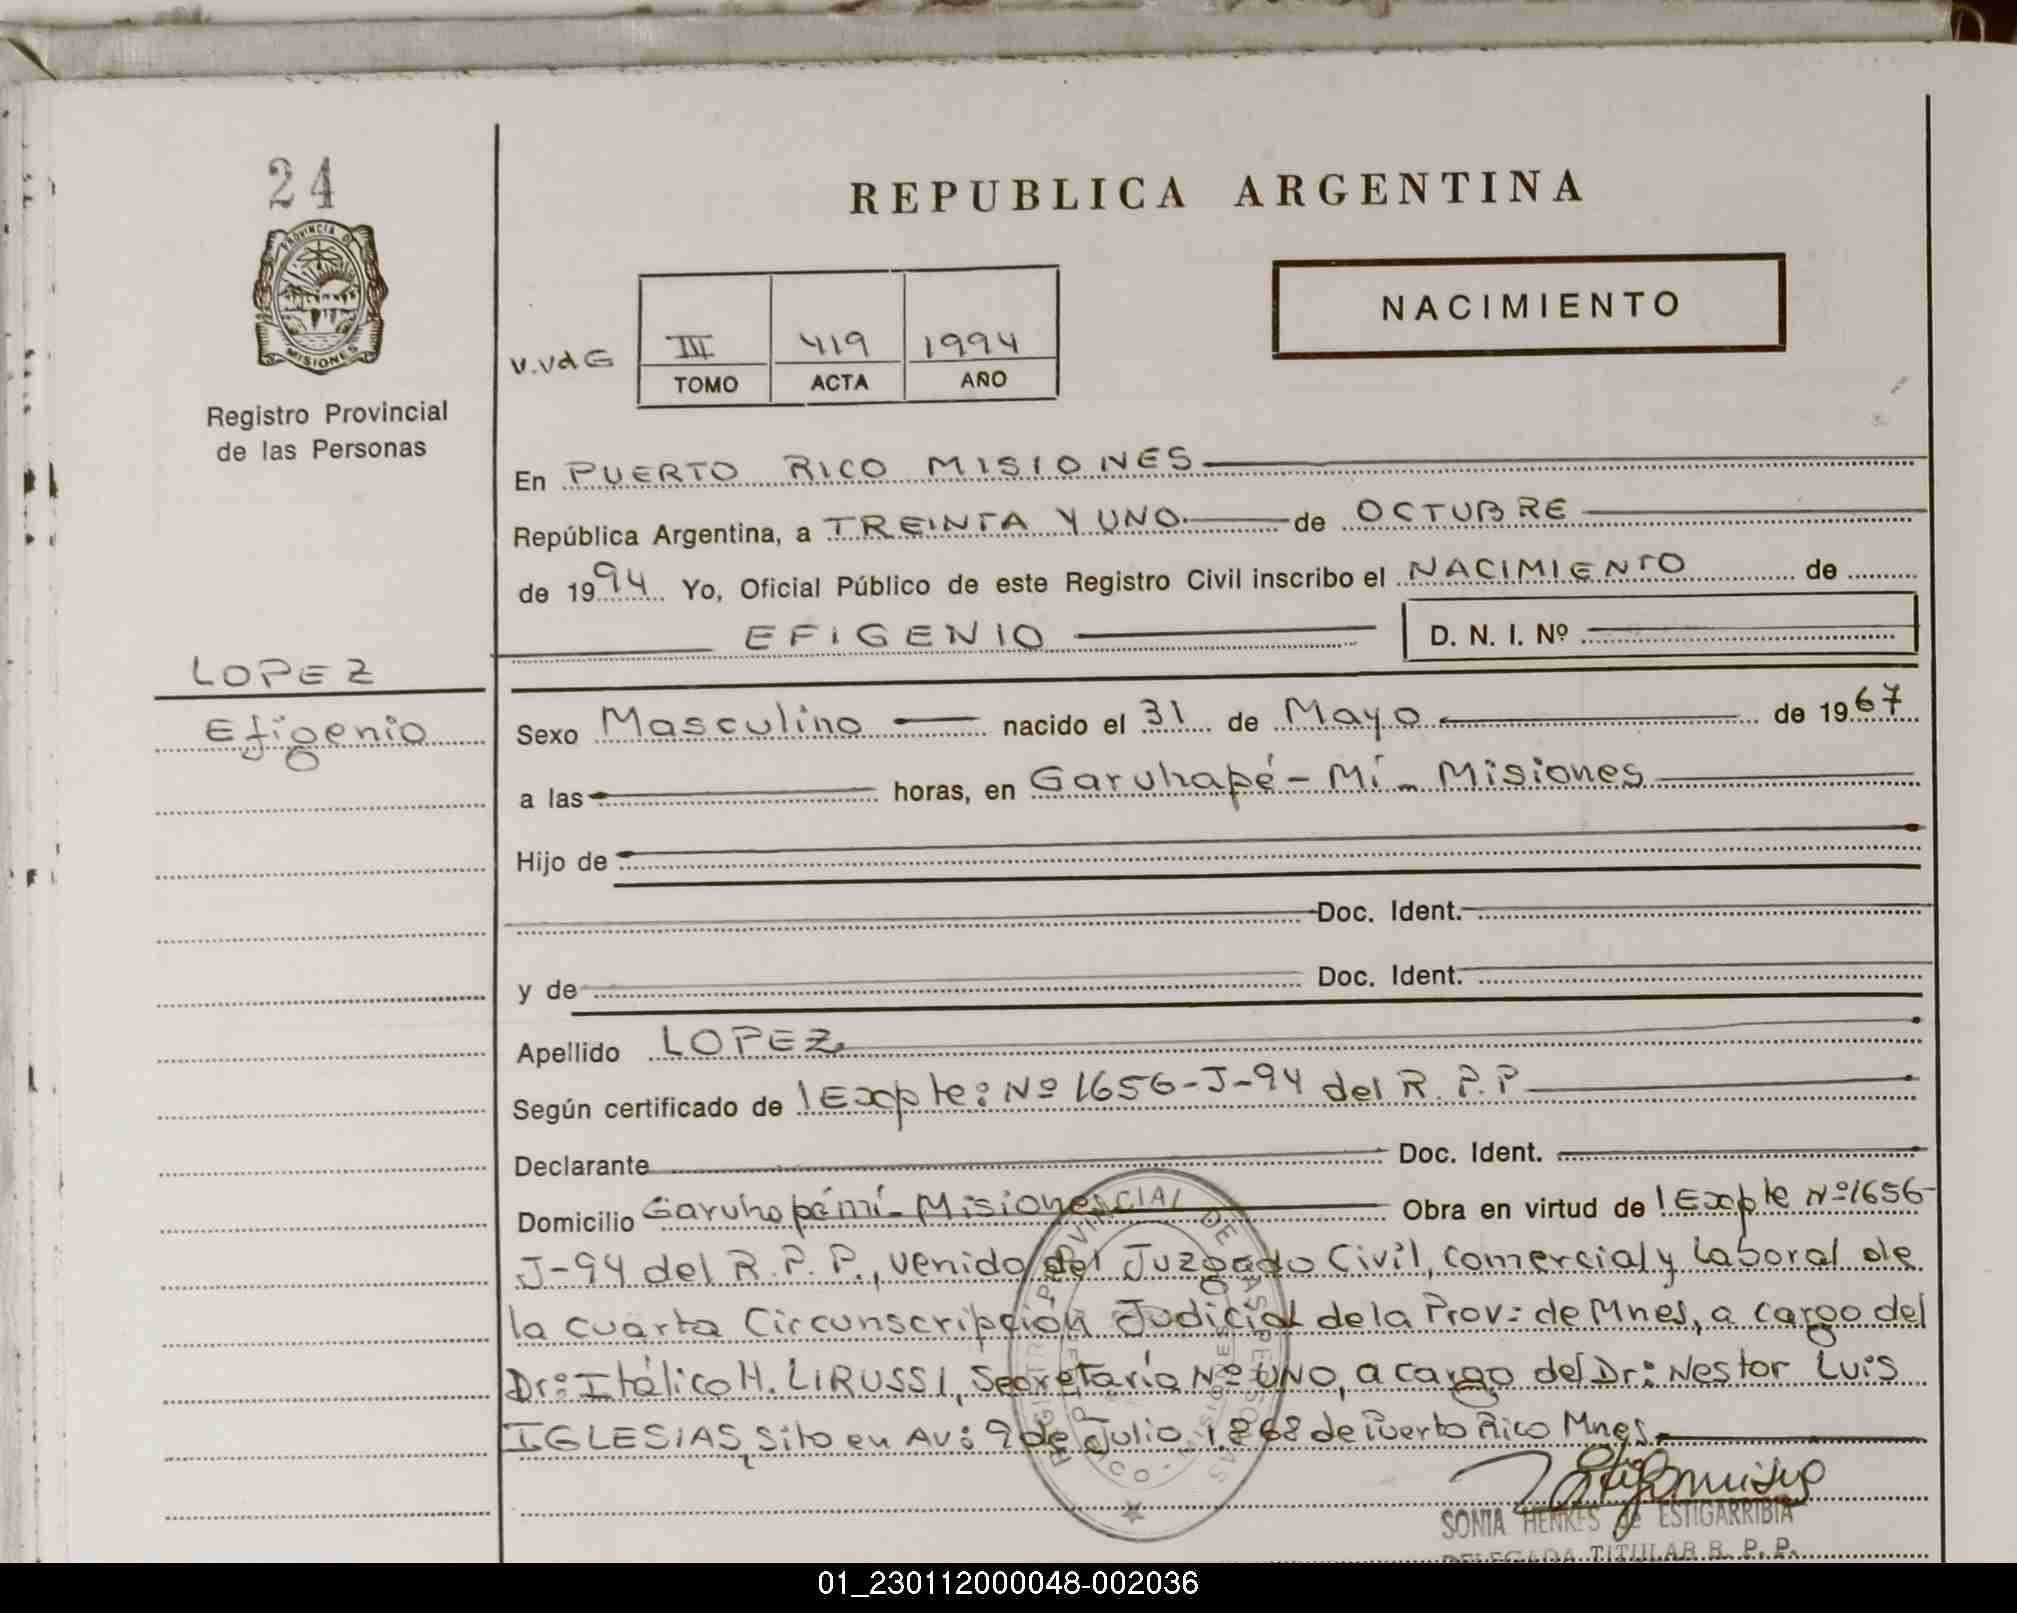 24
PROVINCIA DE
MISIONES
Registro Provincial
de las Personas
LOPEZ
Efigenio
REPUBLICA ARGENTINA
NACIMIENTO
V.VdG
III 419 1994
TOMO ACTA AÑO
En PUERTO RICO MISIONES
República Argentina, a TREINTA Y UNO de OCTUBRE
de 1994 Yo, Oficial Público de este Registro Civil inscribo el NACIMIENTO de
EFIGENIO D. N. I. Nº
Sexo Masculino nacido el 31 de Mayo de 1967
a las horas, en Garuhapé - Mí - Misiones
Hijo de
Doc. Ident.
y de Doc. Ident.
Apellido LOPEZ
Según certificado de /Expte: Nº 1656-J-94 del R.P.P
Declarante Doc. Ident.
Domicilio Garuhapémí - Misiones Obra en virtud de /Expte Nº1656-
J-94 del R.P.P., venido del Juzgado Civil, Comercial y Laboral de
la cuarta Circunscripción Judicial de la Prov: de Mnes, a cargo del
Dr: Itálico H. LIRUSSI, Secretaría Nº UNO, a cargo del Dr: Nestor Luis
IGLESIAS, sito en Av: 9 de Julio 1.868 de Puerto Rico Mnes.
SONIA HENKES de ESTIGARRIBIA
DELEGADA TITULAR R. P. P.
01_230112000048-002036